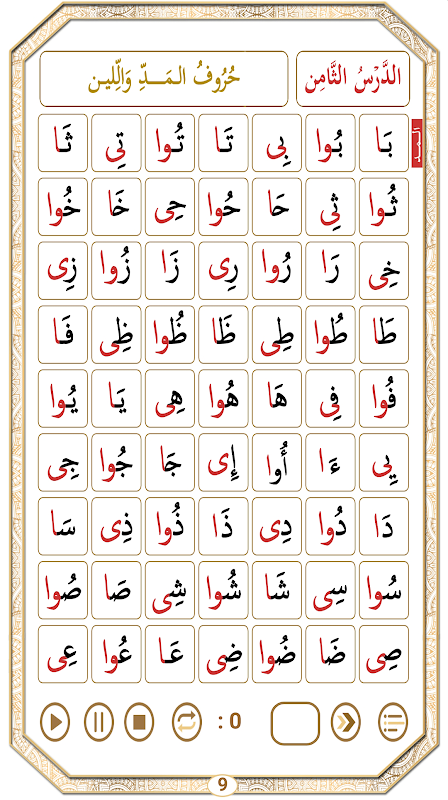 الدَّرْسُ الثَّامِن حُرُوفُ الـمَـــدِّ وَالِّلين
المـد
بَا بُوا بِى تَا تُوا تِى ثَا
ثُوا ثِى حَا حُوا حِى خَا خُوا
خِى رَا رُوا رِى زَا زُوا زِى
طَا طُوا طِى ظَا ظُوا ظِى فَا
فُوا فِى هَا هُوا هِى يَا يُوا
يِى ءَا أُوا إِى جَا جُوا جِى
دَا دُوا دِى ذَا ذُوا ذِى سَا
سُوا سِى شَا شُوا شِى صَا صُوا
صِى ضَا ضُوا ضِى عَا عُوا عِى
: 0
9